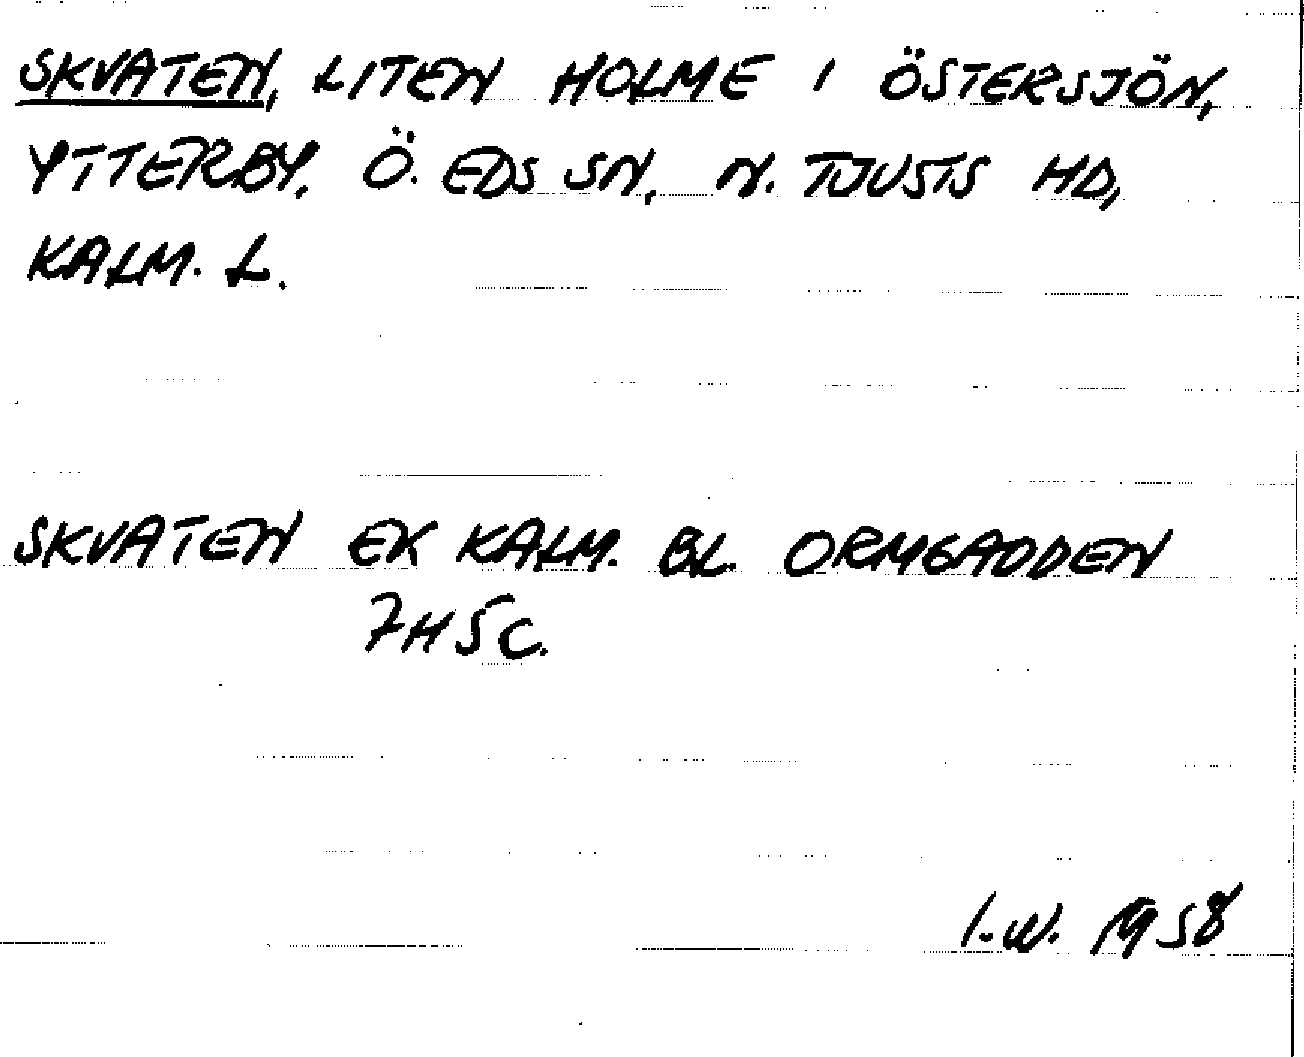 SKVATEN, LITEN HOLME I ÖSTERSJÖN,
YTTERBY. Ö. EDS SN, N. TJUSTS HD,
KALM. L.
SKVATEN EK KALM. BL. ORMGADDEN
7H5C.
I.W. 1958